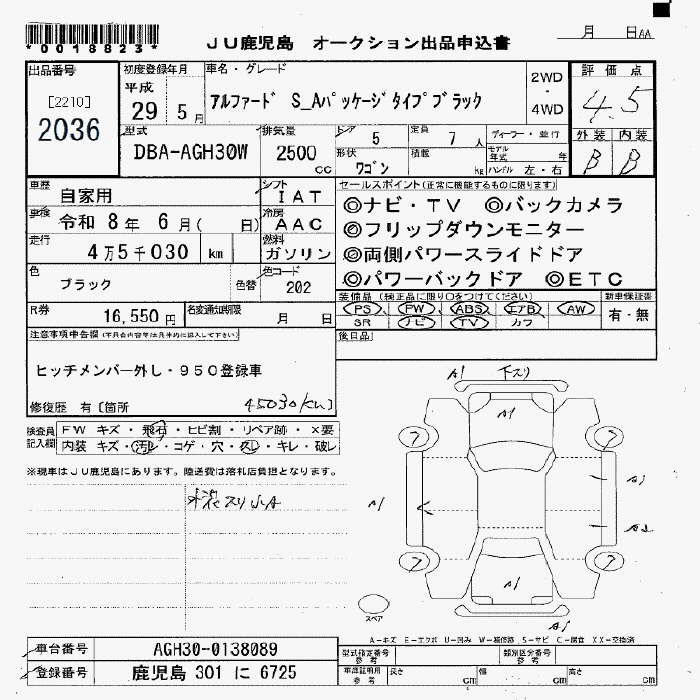 *0018823*
JU鹿児島 オークション出品申込書
月 日AA
出品番号
[2210]
2036
初度登録年月
平成
29 5月
車名・グレード
アルファード S_Aパッケージタイプブラック
2WD
・
4WD
評価点
4.5
外装 内装
B B
型式
DBA-AGH30W
排気量
2500
cc
ドア 5
定員 7人
ディーラー・並行
形状
ワゴン
積載
kg
モデル年式 年
ハンドル 左・右
車歴
自家用
シフト
IAT
車検
令和 8年 6月( 日)
冷房
AAC
走行
4万5千030 km
燃料
ガソリン
色
ブラック
色替
色コード
202
R券
16,550円
名変通知期限
月 日
セールスポイント(正常に機能するものに限ります)
◎ナビ・TV ◎バックカメラ
◎フリップダウンモニター
◎両側パワースライドドア
◎パワーバックドア ◎ETC
装備品(純正品に限り○をつけてください)
PS PW ABS エアB AW
SR ナビ TV カワ
新車保証書
有・無
後日品
注意事項申告欄(不具合内容等は具体的に記入して下さい)
ヒッチメンバー外し・950登録車
修復歴 有〔箇所
45030km〕
検査員記入欄
FW キズ・飛石・ヒビ割・リペア跡・×要
内装 キズ・汚レ・コゲ・穴・スレ・キレ・破レ
※現車はJU鹿児島にあります。陸送費は落札店負担となります。
A1 下スリ
A1
A1
A1
A1
スペア
A-キズ E-エクボ U-凹み W-補修跡 S-サビ C-腐食 XX-交換済
車台番号
AGH30-0138089
登録番号
鹿児島 301 に 6725
型式指定番号
参考
類別区分番号
参考
車庫証明用
参考
長さ cm
幅 cm
高さ cm